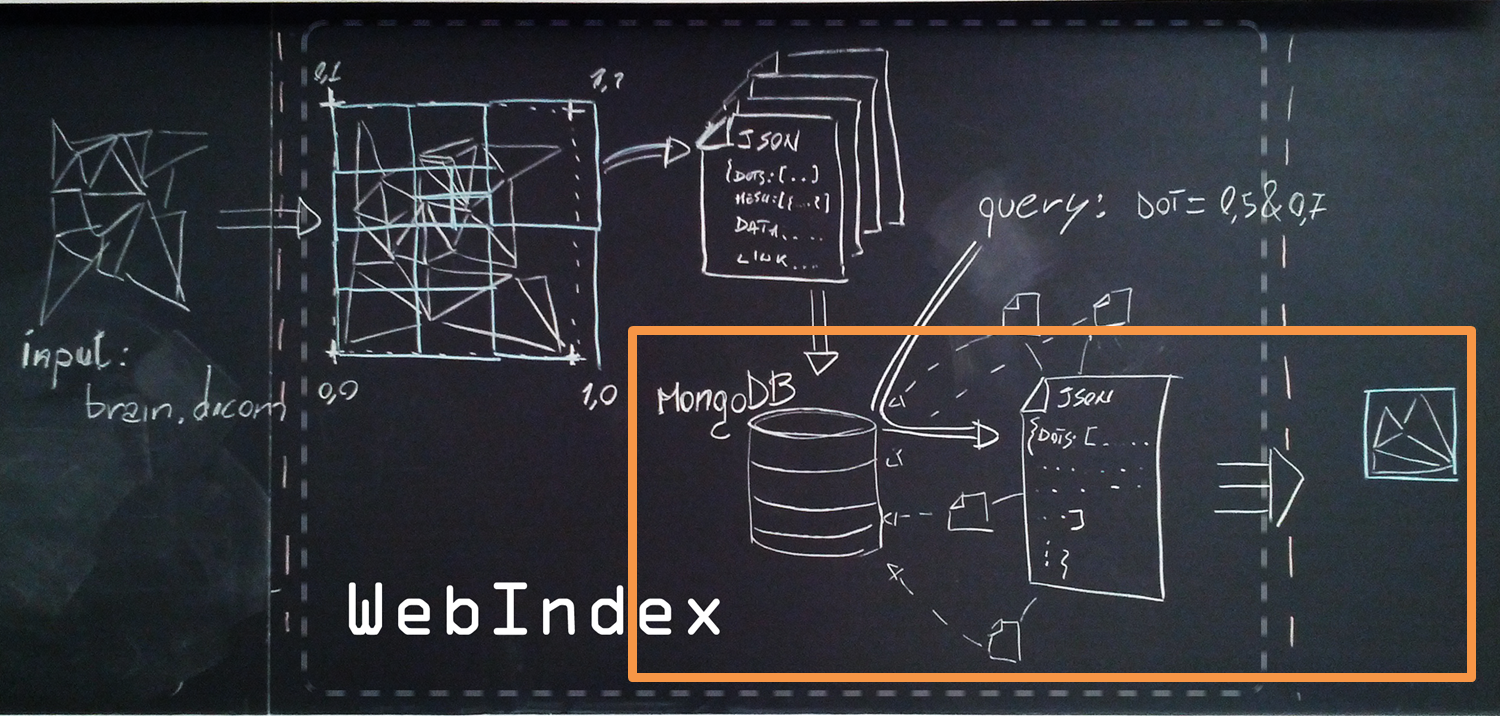 input:
brain.dicom
0,1
1,1
0,0
1,0
JSON
{DOTS:[..]
MESH:[{...}]
DATA....
LINK...
query: DOT = 0,5&0,7
MongoDB
JSON
{DOTS:[.....
..]
:}
WebIndex